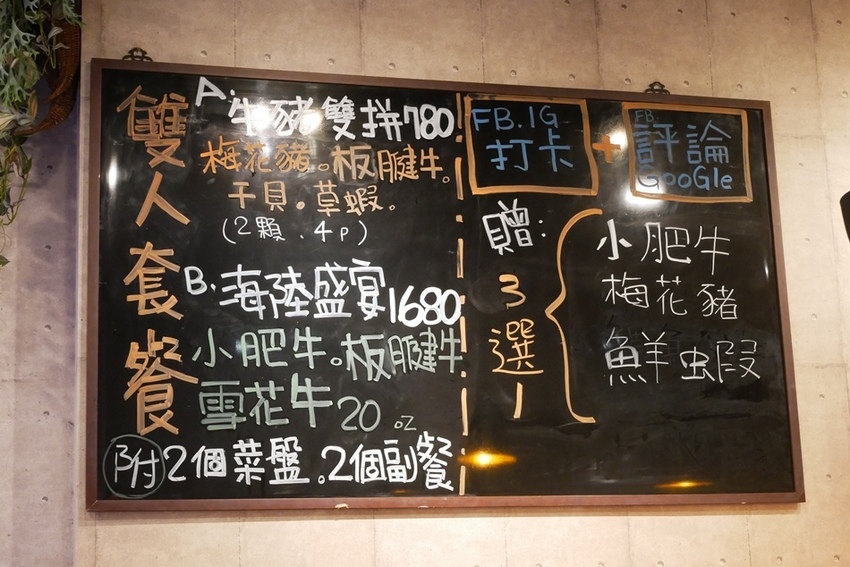 雙人套餐
A. 牛豬雙拼780
梅花豬。板腱牛。
干貝。草蝦。
(2顆、4P)
B. 海陸盛宴1680
小肥牛。板腱牛
雪花牛20oz
附 2個菜盤。2個副餐
FB.IG
打卡
+
FB.
評論
GooGle
贈:
3選1
小肥牛
梅花豬
鮮蝦